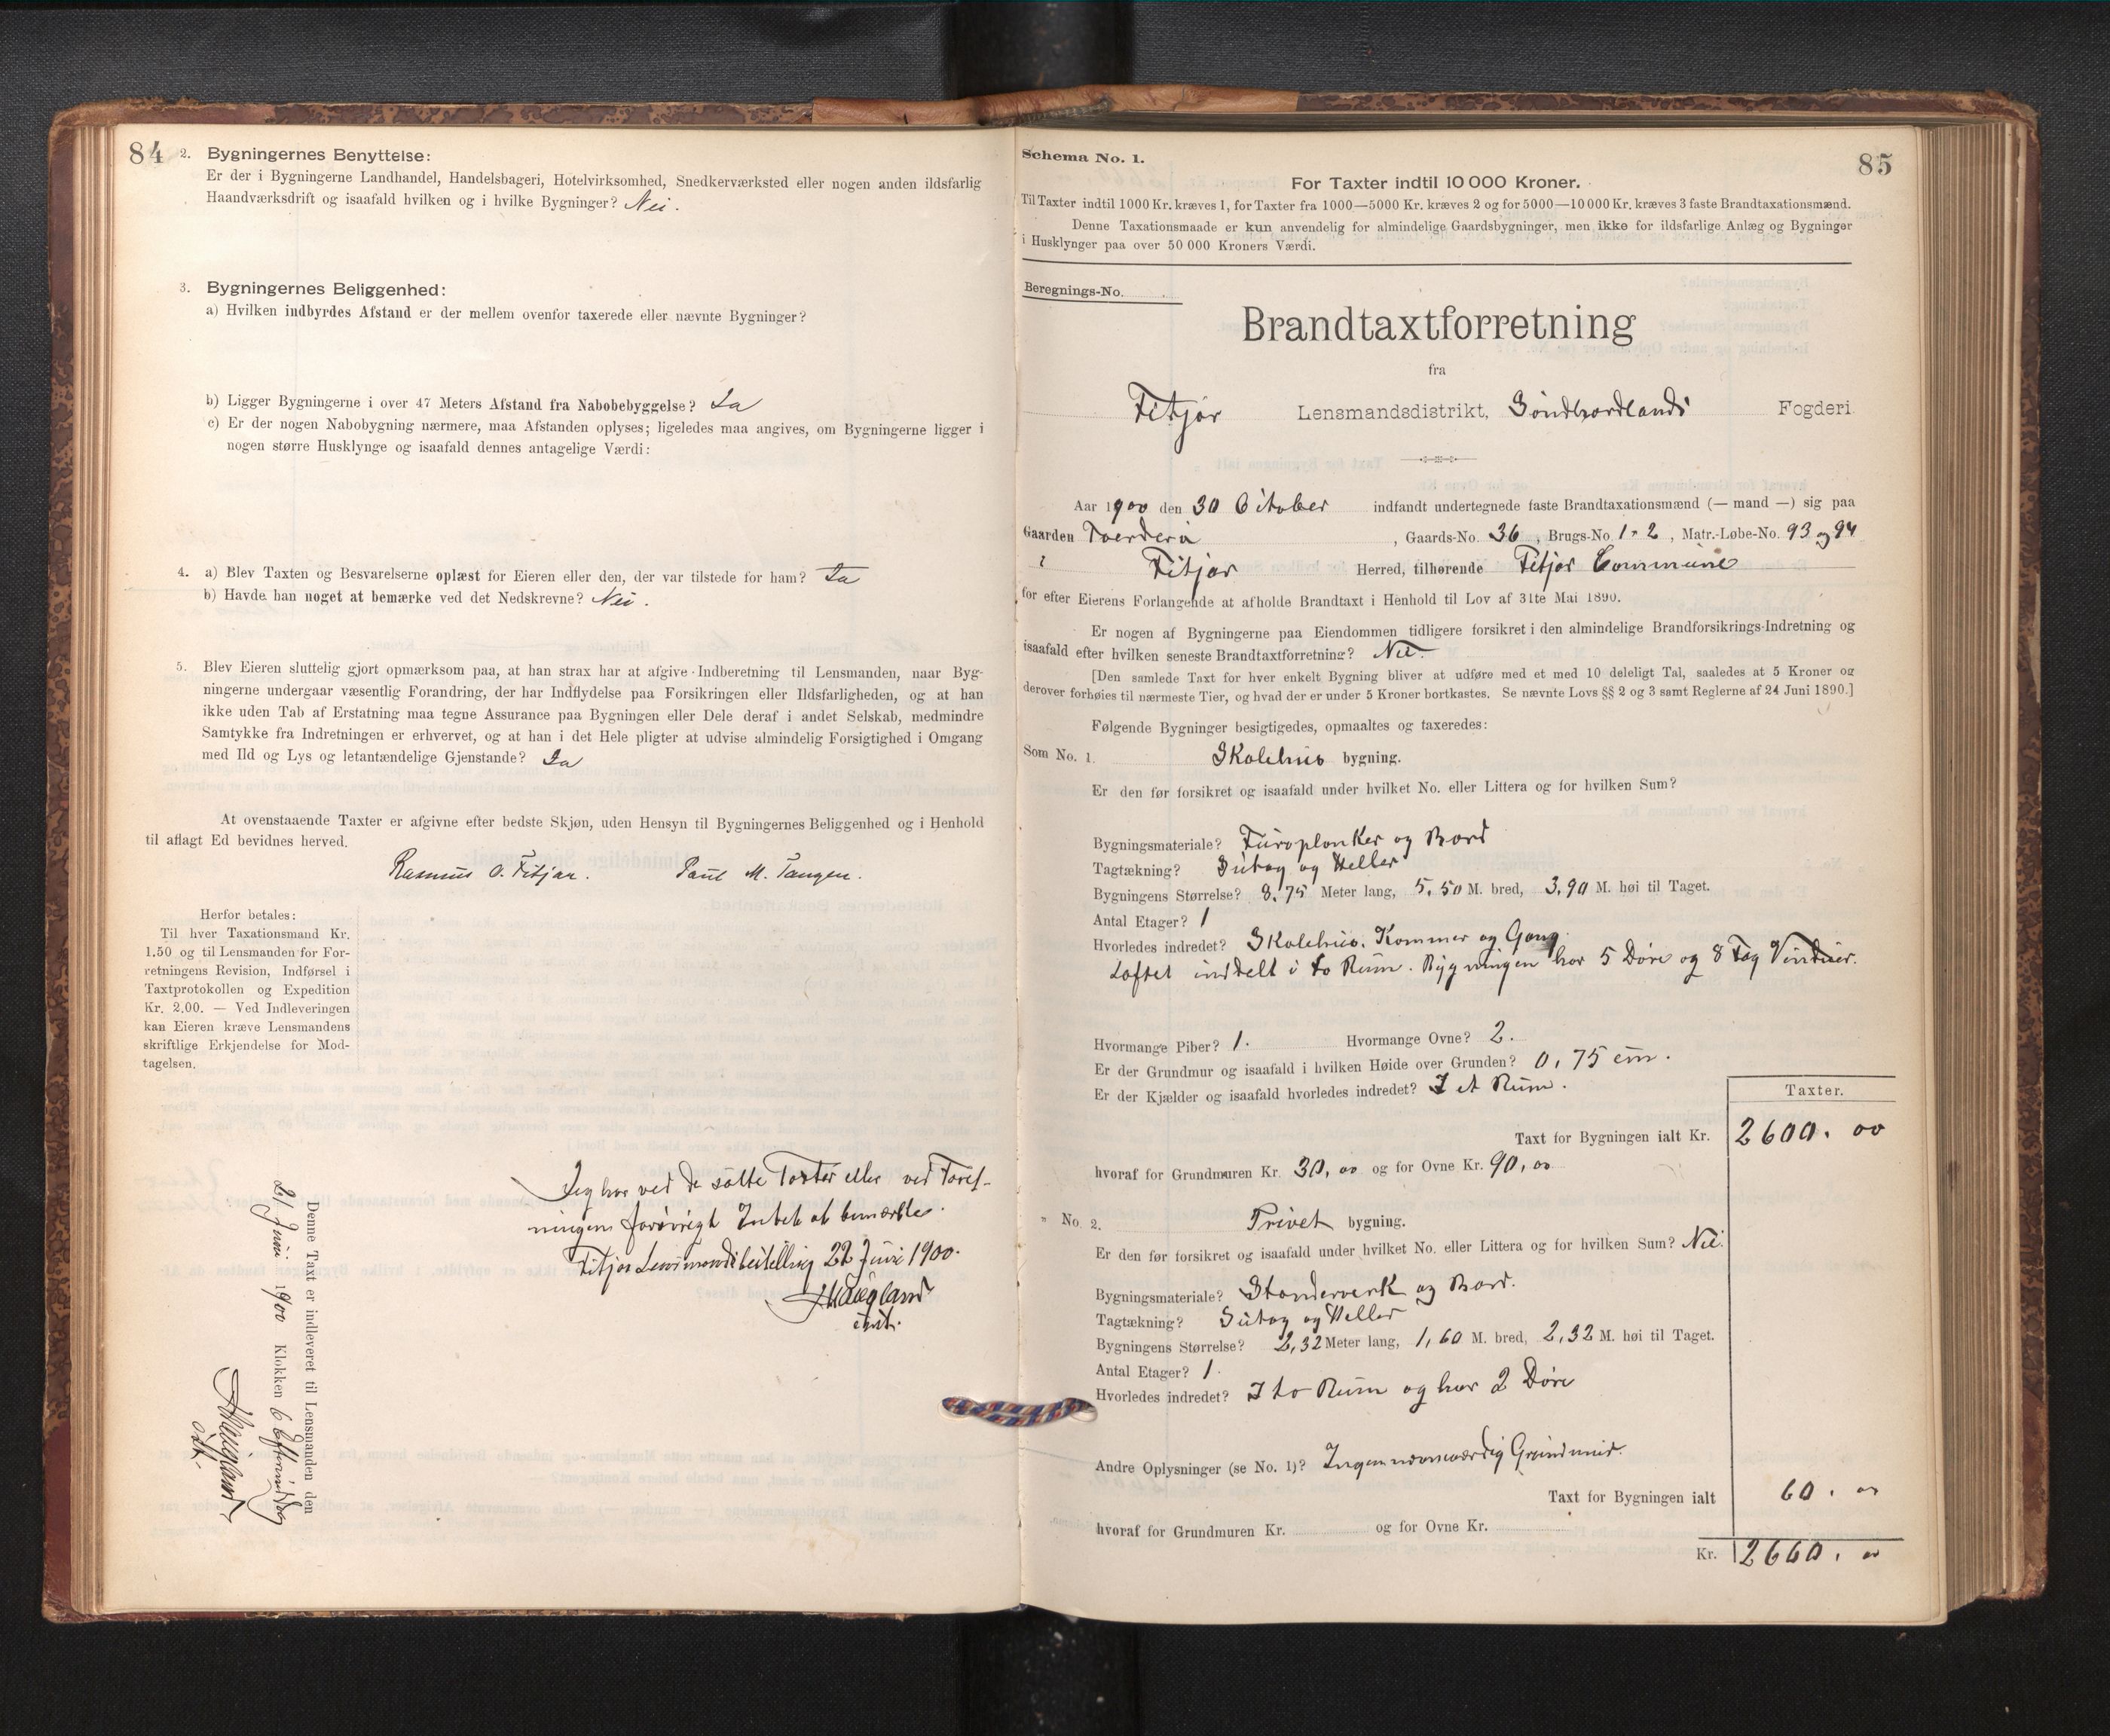 84
2. Bygningernes Benyttelse:
Er der i Bygningerne Landhandel, Handelsbageri, Hotelvirksomhed, Snedkerværksted eller nogen anden ildsfarlig
Haandværksdrift og isaafald hvilken og i hvilke Bygninger? Nei.
3. Bygningernes Beliggenhed:
a) Hvilken indbyrdes Afstand er der mellem ovenfor taxerede eller nævnte Bygninger?
b) Ligger Bygningerne i over 47 Meters Afstand fra Nabobebyggelse? Ja
c) Er der nogen Nabobygning nærmere, maa Afstanden oplyses; ligeledes maa angives, om Bygningerne ligger i
nogen større Husklynge og isaafald dennes antagelige Værdi:
4. a) Blev Taxten og Besvarelserne oplæst for Eieren eller den, der var tilstede for ham? Ja
b) Havde han noget at bemærke ved det Nedskrevne? Nei.
5. Blev Eieren sluttelig gjort opmærksom paa, at han strax har at afgive Indberetning til Lensmanden, naar Byg-
ningerne undergaar væsentlig Forandring, der har Indflydelse paa Forsikringen eller Ildsfarligheden, og at han
ikke uden Tab af Erstatning maa tegne Assurance paa Bygningen eller Dele deraf i andet Selskab, medmindre
Samtykke fra Indretningen er erhvervet, og at han i det Hele pligter at udvise almindelig Forsigtighed i Omgang
med Ild og Lys og letantændelige Gjenstande? Ja
At ovenstaaende Taxter er afgivne efter bedste Skjøn, uden Hensyn til Bygningernes Beliggenhed og i Henhold
til aflagt Ed bevidnes herved.
Rasmus O. Fitjar. Paul M. Tangen.
Herfor betales:
Til hver Taxationsmand Kr.
1.50 og til Lensmanden for For-
retningens Revision, Indførsel i
Taxtprotokollen og Expedition
Kr. 2.00. — Ved Indleveringen
kan Eieren kræve Lensmandens
skriftlige Erkjendelse for Mod-
tagelsen.
Jeg har ved de satte Taxter eller ved Forret-
ningen forøvrigt Intet at bemærke.
Fitjar Lensmandsbestilling 22 Juni 1900.
Denne Taxt er indleveret til Lensmanden den
21 Juni 1900 Klokken 6 Eftermiddag
85
Schema No. 1.
For Taxter indtil 10 000 Kroner.
Til Taxter indtil 1000 Kr. kræves 1, for Taxter fra 1000—5000 Kr. kræves 2 og for 5000—10 000 Kr. kræves 3 faste Brandtaxationsmænd.
Denne Taxationsmaade er kun anvendelig for almindelige Gaardsbygninger, men ikke for ildsfarlige Anlæg og Bygninger
i Husklynger paa over 50 000 Kroners Værdi.
Beregnings-No.
Brandtaxtforretning
fra
Fitjar Lensmandsdistrikt, Søndhordlands Fogderi
Aar 1900 den 30 October indfandt undertegnede faste Brandtaxationsmænd (— mand —) sig paa
Gaarden , Gaards-No. 36, Brugs-No 1-2, Matr.-Løbe-No. 93 og 94
i Fitjar Herred, tilhørende Fitjar Commune
for efter Eierens Forlangende at afholde Brandtaxt i Henhold til Lov af 31te Mai 1890.
Er nogen af Bygningerne paa Eiendommen tidligere forsikret i den almindelige Brandforsikrings-Indretning og
isaafald efter hvilken seneste Brandtaxtforretning? Nei.
[Den samlede Taxt for hver enkelt Bygning bliver at udføre med et med 10 deleligt Tal, saaledes at 5 Kroner og
derover forhøies til nærmeste Tier, og hvad der er under 5 Kroner bortkastes. Se nævnte Lovs §§ 2 og 3 samt Reglerne af 24 Juni 1890.]
Følgende Bygninger besigtigedes, opmaaltes og taxeredes:
Som No. 1. Skolehus bygning.
Er den før forsikret og isaafald under hvilket No. eller Littera og for hvilken Sum?
Bygningsmateriale? Furoplanker og Bord
Tagtækning? Sutag og Heller
Bygningens Størrelse? 8,75 Meter lang, 5,50 M. bred, 3,90 M. høi til Taget.
Antal Etager? 1
Hvorledes indredet? Skolehus. Kammer og Gang.
Loftet inddelt i to Rum. Bygningen har 5 Døre og 8 Fag Vinduer.
Hvormange Piber? 1. Hvormange Ovne? 2.
Er der Grundmur og isaafald i hvilken Høide over Grunden? 0,75 cm.
Er der Kjælder og isaafald hvorledes indredet? I et Rum.
Taxter.
Taxt for Bygningen ialt Kr. 2600. 00
hvoraf for Grundmuren Kr. 30,00 og for Ovne Kr. 90,00
" No. 2. Privet bygning.
Er den før forsikret og isaafald under hvilket No. eller Littera og for hvilken Sum? Nei.
Bygningsmateriale? Standerverk og Bord.
Tagtækning? Sutag og Heller
Bygningens Størrelse? 2,32 Meter lang, 1,60 M. bred, 2,32 M. høi til Taget.
Antal Etager? 1.
Hvorledes indredet? I to Rum og har 2 Døre
Andre Oplysninger (se No. 1)? Ingen nævneværdig Grundmur.
Taxt for Bygningen ialt 60. 00
hvoraf for Grundmuren Kr. og for Ovne Kr.
Kr. 2660. 00